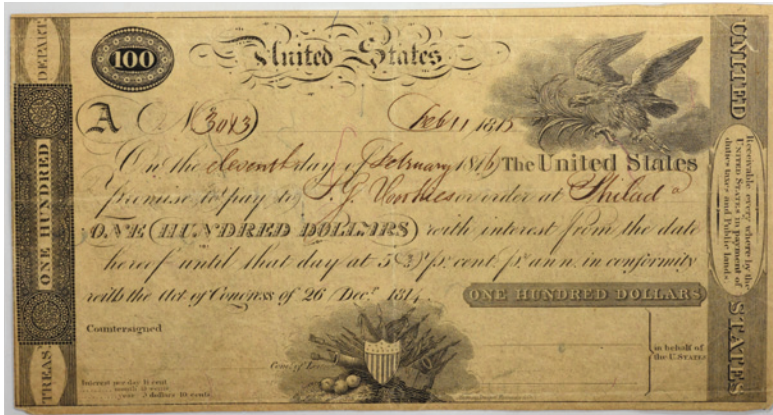 100
United States
A No 3043 Feb 11 1815
On the eleventh day of February 1816 The United States
promise to pay to P. G. Voorhies or order at Philad a
ONE (HUNDRED DOLLARS) with interest from the date
hereof until that day at 5 2/5 pr. cent. pr. ann. in conformity
with the Act of Congress of 26 Decr. 1814.
ONE HUNDRED DOLLARS
Countersigned
in behalf of
the U. STATES
Interest per day 1½ cent
year 5 dollars 40 cents
DEPART.
ONE HUNDRED
TREAS
UNITED
Receivable every where by the
UNITED STATES in payment of
duties taxes and Public lands
STATES